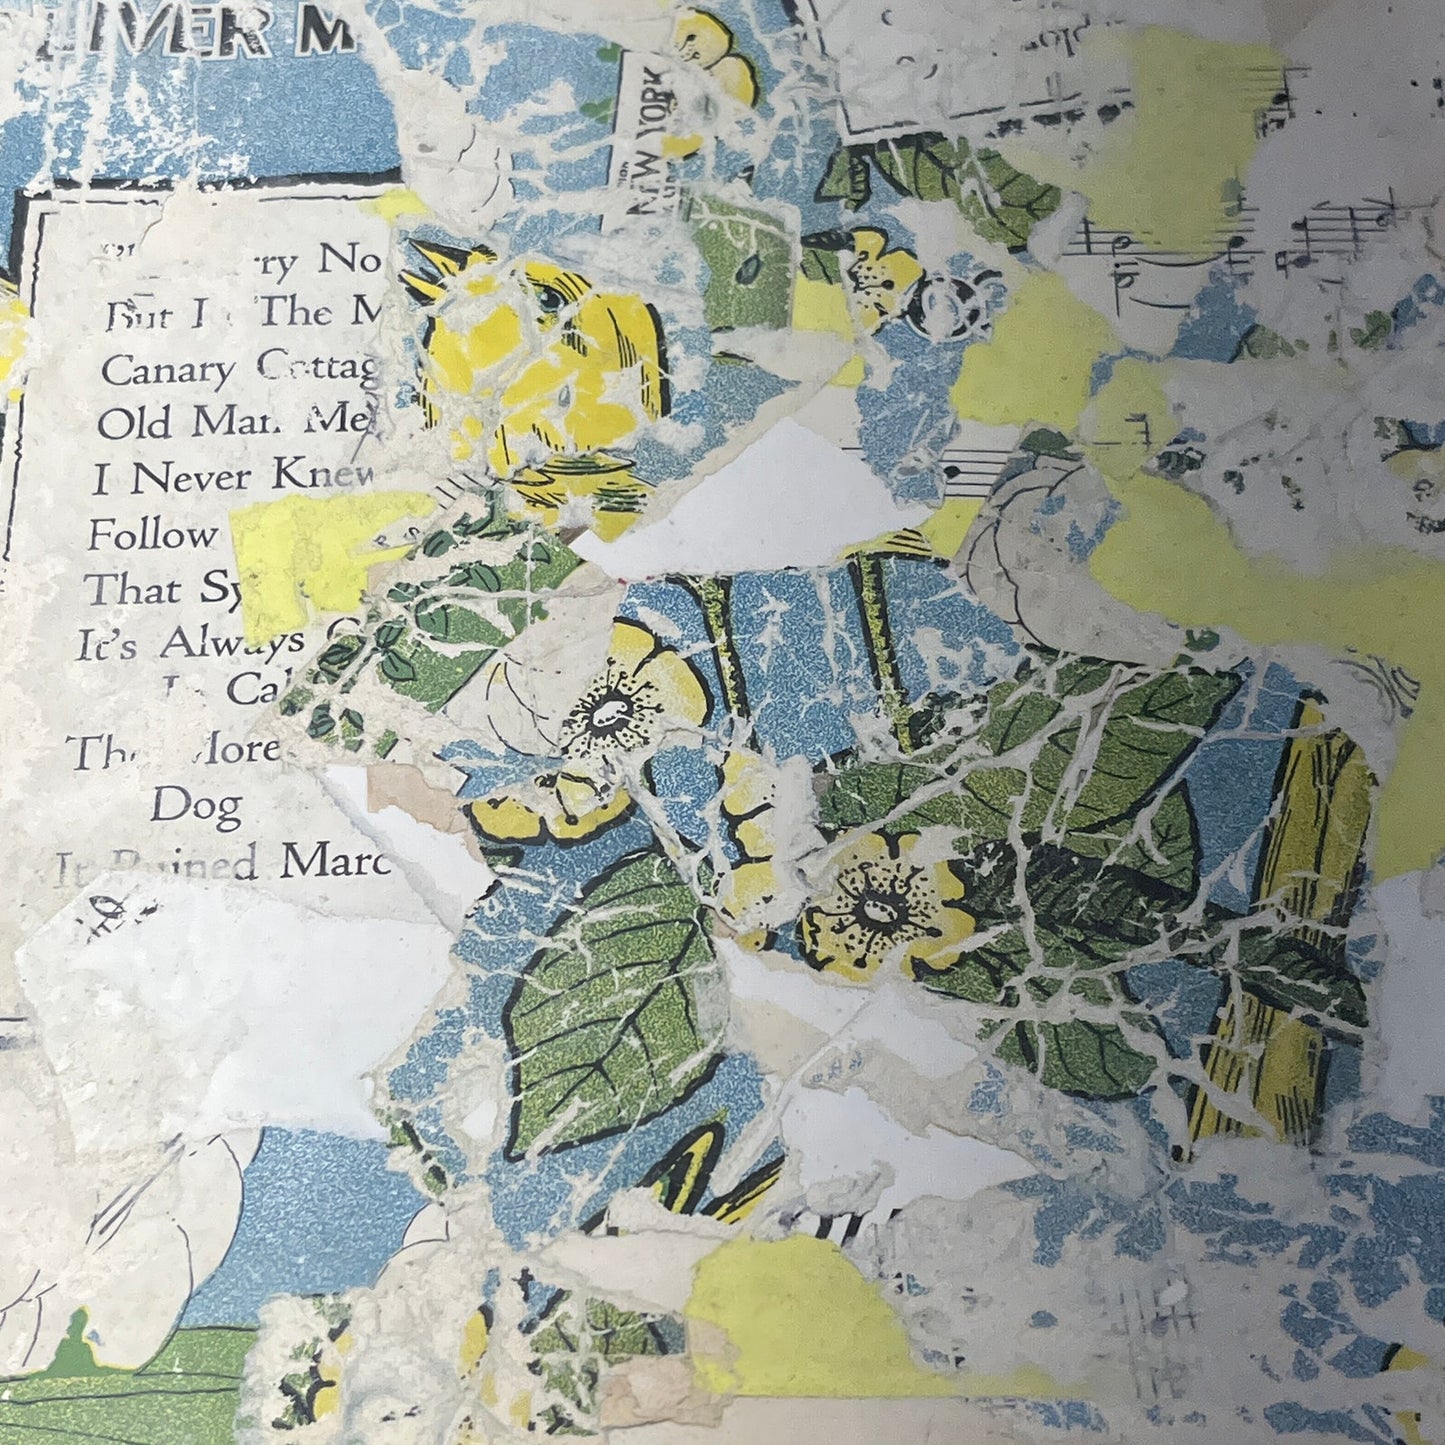 LIVER M
NEW YORK
ry No
But I The M
Canary Cottag
Old Man Me
I Never Knew
Follow
That Sy
It's Always
Cal
Th lore
Dog
It Ruined Marc